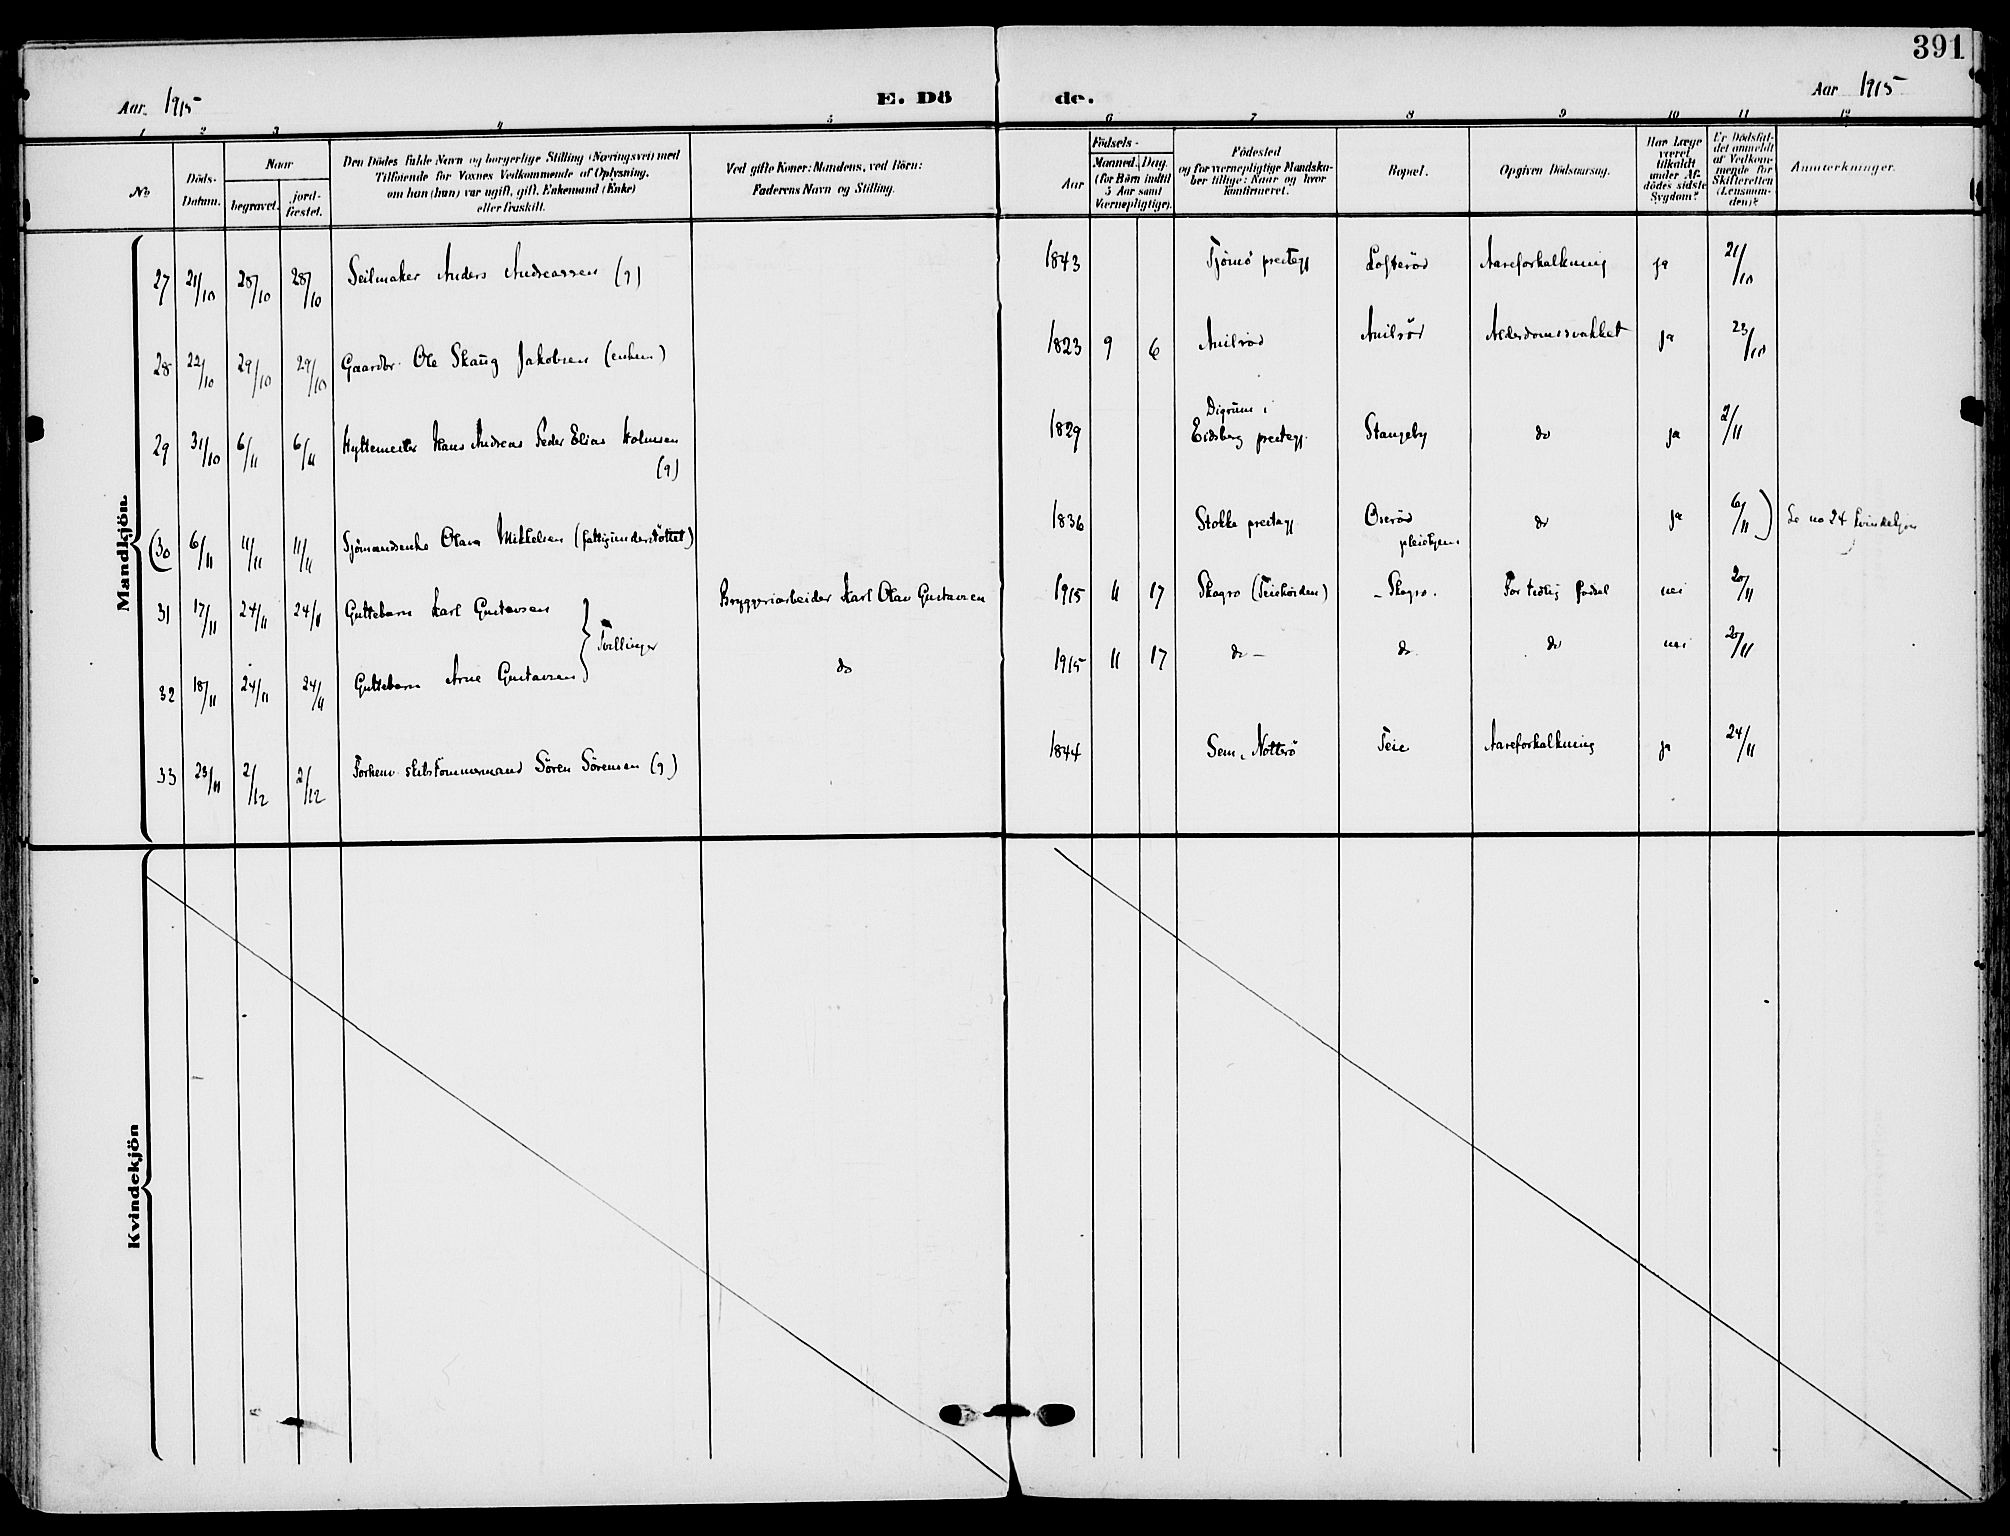 391
Aar 1915
E. Dö
de.
Aar 1915
1 2 3 4 5 6 7 8 9 10 11 12
No
Döds-Datum.
Naar
begravet.
jord-fæstet.
Den Dödes fulde Navn og borgerlige Stilling (Næringsvei) med
Tilföiende for Voxnes Vedkommende af Oplysning,
om han (hun) var ugift, gift, Enkemand (Enke)
eller fraskilt.
Ved gifte Koner: Mandens, ved Börn:
Faderens Navn og Stilling.
Aar
Födsels-
Maaned. Dag.
(for Börn indtil
5 Aar samt
Værnepligtige).
Födested
og for værnepligtige Mandska-
ber tillige: Naar og hvor
konfirmeret.
Bopæl.
Opgiven Dödsaarsag.
Har Læge
været
tilkaldt
under Af-
dödes sidste
Sygdom?
Er Dödsfal-
det anmeldt
af Vedkom-
mende for
Skifteretten
(Lensman-
den)?
Anmærkninger.
Mandkjön.
27 21/10 28/10 28/10 Seilmaker Anders Andreassen (g) 1843 Tjömö prestegj Lofteröd Aareforkalkning ja 21/10
28 22/10 29/10 29/10 Gaardbr. Ole Skaug Jakobsen (enkem) 1823 9 6 Aniliröd Anilröd Alderdomssvakket ja 23/10
29 31/10 6/11 6/11 Hyttemester Hans Andreas Peder Elias Holmsen (g) 1829 Digrum i Eidsberg prestegj. Stangeby do ja 2/11
(30 6/11 11/11 11/11 Sjömandsenke Olava Mikkelsen (fattigunderstöttet) 1836 Stokke prestegj Oseröd pleiehjem do ja 6/11) Se no 24 kvindekjön
31 17/11 24/11 24/11 Guttebarn Karl Gustavsen } Tvillinger Bryggeriarbeider Karl Olav Gustavsen 1915 11 17 Skagro (Teiehöiden) - Skagro. For tidlig födsel nei 20/11
32 18/11 24/11 24/11 Guttebarn Arne Gustavsen do 1915 11 17 do - do do nei 20/11
33 23/11 2/12 2/12 Forhenv. skibstömmermand Sören Sörensen (g) 1844 Sem, Nötterö Teie Aareforkalkning ja 24/11
Kvindekjön